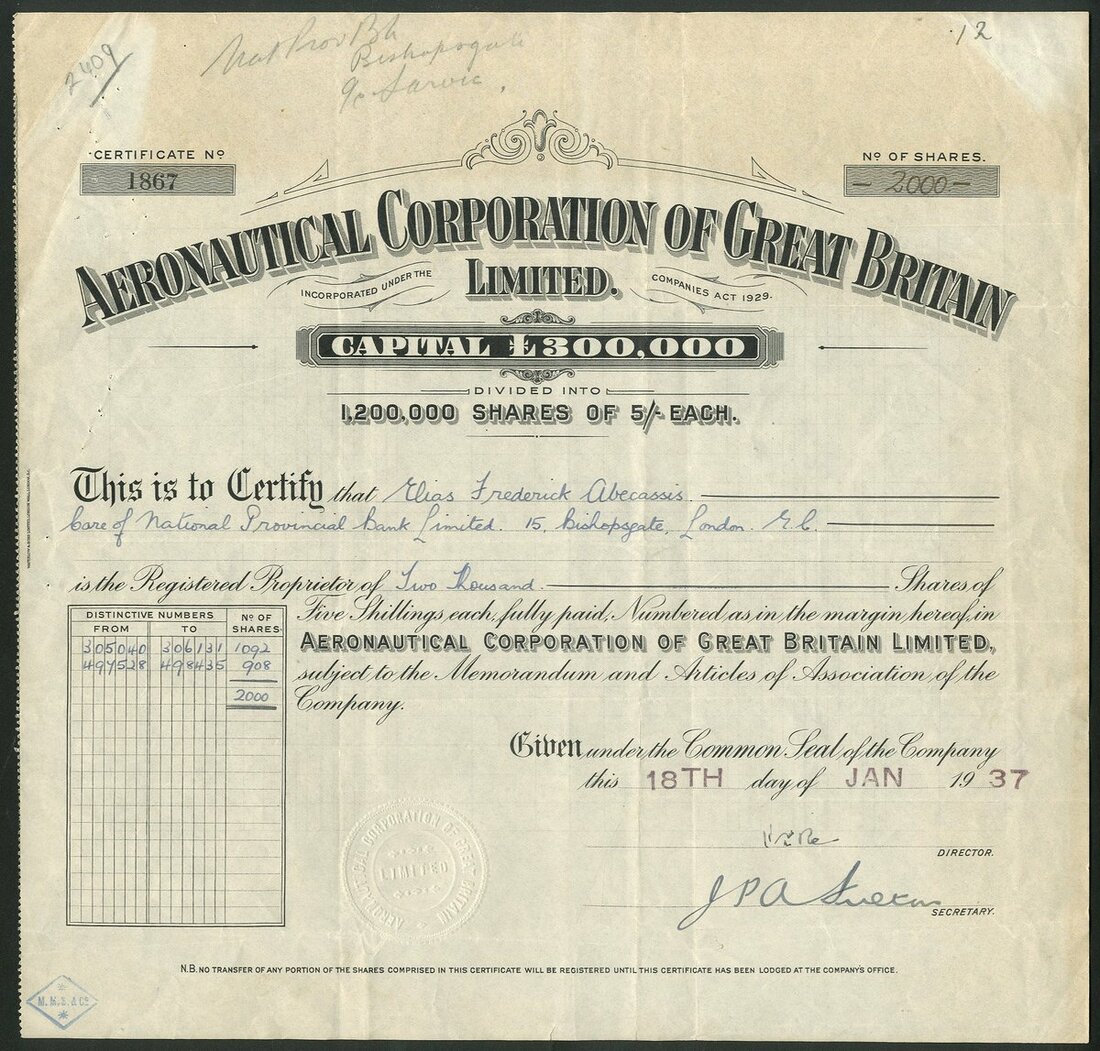 2409
Nat Prov Bk
Bishopsgate
12
CERTIFICATE Nº
1867
Nº OF SHARES.
– 2000 –
AERONAUTICAL CORPORATION OF GREAT BRITAIN
LIMITED.
INCORPORATED UNDER THE COMPANIES ACT 1929.
CAPITAL £300,000
DIVIDED INTO
1,200,000 SHARES OF 5/- EACH.
This is to Certify that Elias Frederick Abecassis.
Care of National Provincial Bank Limited. 15, Bishopsgate, London. E.C.
is the Registered Proprietor of Two Thousand. Shares of
Five Shillings each, fully paid, Numbered as in the margin hereof, in
AERONAUTICAL CORPORATION OF GREAT BRITAIN LIMITED,
subject to the Memorandum and Articles of Association of the
Company.
DISTINCTIVE NUMBERS Nº OF
FROM TO SHARES
305040 306131 1092
497528 498435 908
2000
Given under the Common Seal of the Company
this 18TH day of JAN 1937
DIRECTOR.
J P A
SECRETARY.
AERONAUTICAL CORPORATION OF GREAT BRITAIN
LIMITED
N.B. NO TRANSFER OF ANY PORTION OF THE SHARES COMPRISED IN THIS CERTIFICATE WILL BE REGISTERED UNTIL THIS CERTIFICATE HAS BEEN LODGED AT THE COMPANY'S OFFICE.